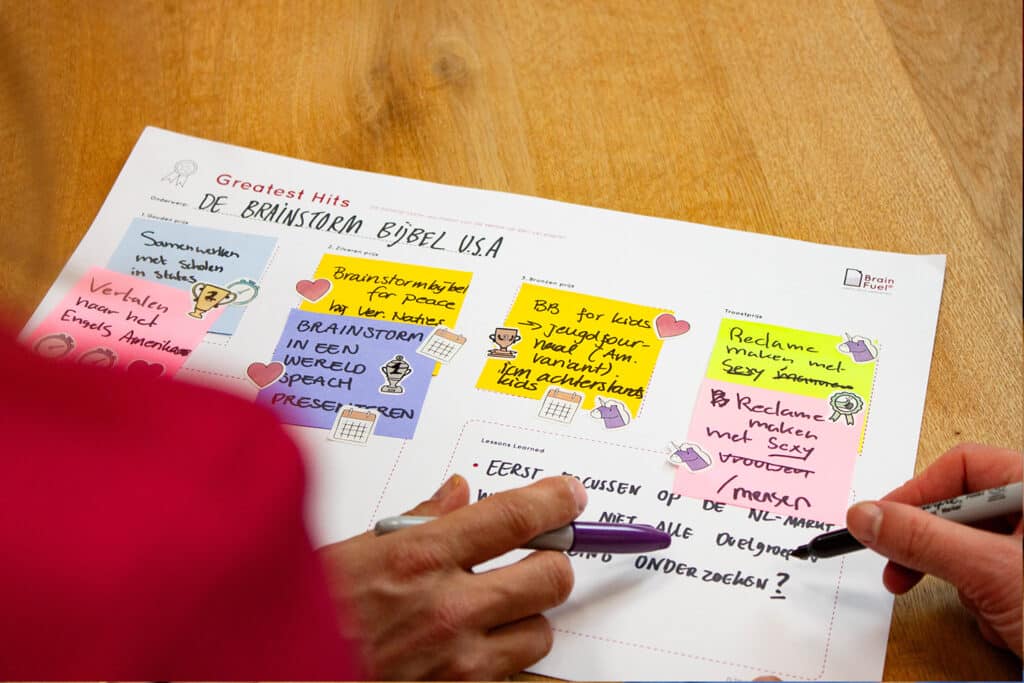 Greatest Hits
Onderwerp:
DE BRAINSTORM BIJBEL U.S.A
1. Gouden prijs
Samenwerken
met scholen
in states
Vertalen
naar het
Engels Amerikaans
2. Zilveren prijs
Brainstormbijbel
for peace
bij Ver. Naties
BRAINSTORM
IN EEN
WERELD
SPEACH
PRESENTEREN
3. Bronzen prijs
BB for kids
→ jeugdjour-
naal (Am.
variant)
icm achterstands
kids
Troostprijs
Reclame
maken met
Sexy
Reclame
maken
met Sexy
vrouwen
/mensen
Brain
Fuel®
Lessons Learned
• EERST FOCUSSEN OP DE NL-MARKT
NIET ALLE DOELGROEPEN
ONDERZOEKEN?